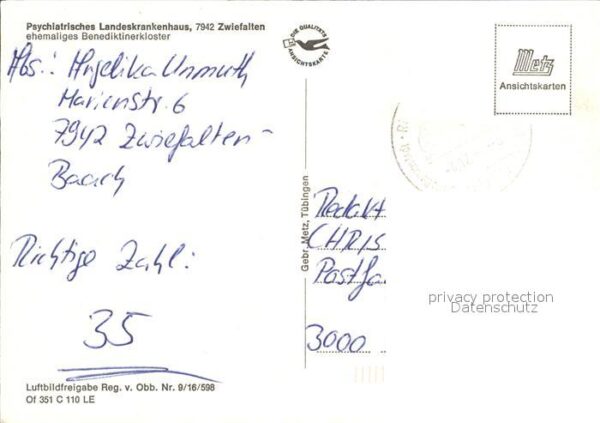 Psychiatrisches Landeskrankenhaus, 7942 Zwiefalten
ehemaliges Benediktinerkloster
DIE QUALITÄTS
ANSICHTSKARTE
Metz
Ansichtskarten
Abs.: Angelika Unmuth
Marienstr. 6
7942 Zwiefalten-
Baach
Richtige Zahl:
35
Luftbildfreigabe Reg. v. Obb. Nr. 9/16/598
Of 351 C 110 LE
Gebr. Metz, Tübingen
Redakt
CHRIS
Postfa
3000
privacy protection
Datenschutz